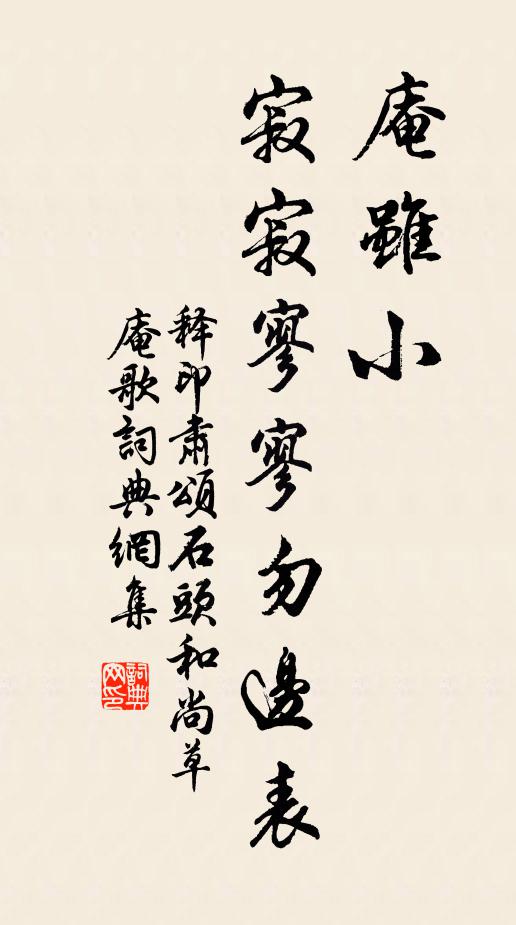 庵雖小
寂寂寥寥勿邊表
释印肅頌石頭和尚草
庵歌詞典網集
詞典
网印